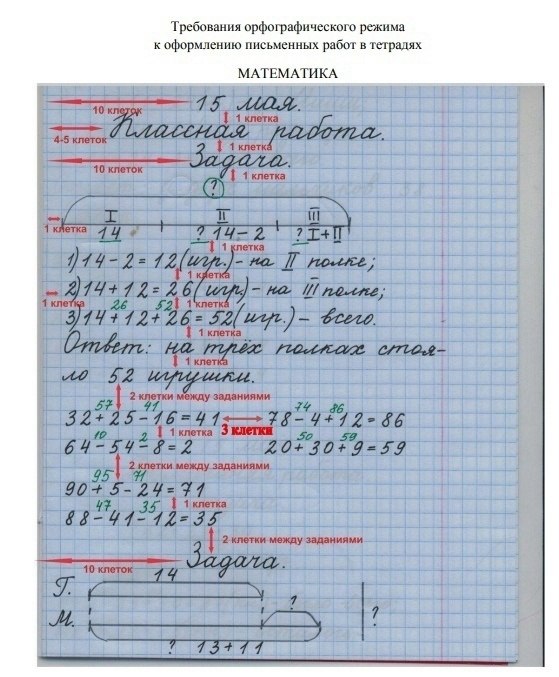 Требования орфографического режима
к оформлению письменных работ в тетрадях
МАТЕМАТИКА
10 клеток 15 мая.
1 клетка
4-5 клеток Классная работа.
1 клетка
10 клеток Задача.
1 клетка
?
I II III
1 клетка 14 ? 14-2 ? I+II
1 клетка
1) 14-2=12(игр.)- на II полке;
1 клетка
2) 14+12=26(игр.)- на III полке;
1 клетка 26 52 1 клетка
3) 14+12+26=52(игр.)- всего.
1 клетка
Ответ: на трёх полках стоя-
1 клетка
ло 52 игрушки.
2 клетки между заданиями
57 41 74 86
32+25-16=41 3 клетки 78-4+12=86
1 клетка
10 2 50 59
64-54-8=2 20+30+9=59
2 клетки между заданиями
95 71
90+5-24=71
1 клетка
47 35
88-41-12=35
2 клетки между заданиями
10 клеток Задача.
14
Г.
?
М. ?
? 13+11